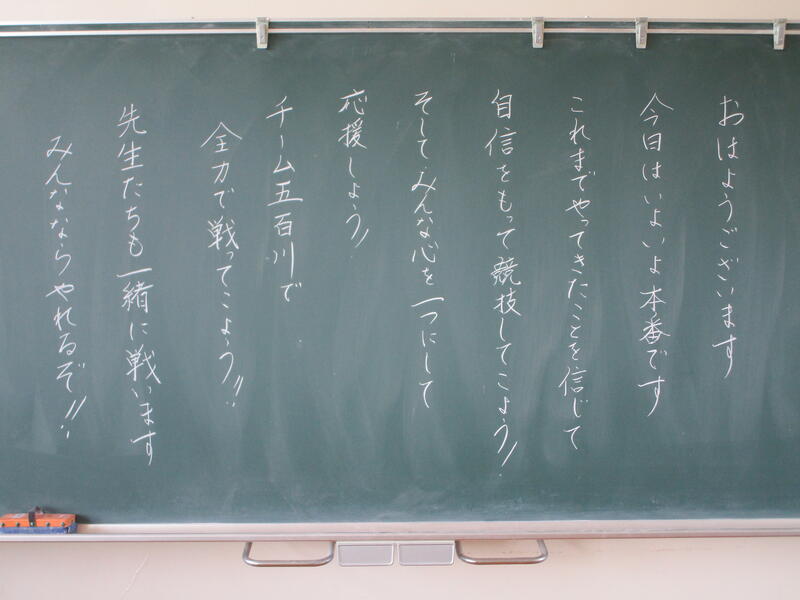 おはようございます
今日はいよいよ本番です
これまでやってきたことを信じて
自信をもって競技してこよう!
そしてみんな心を一つにして
応援しよう!
チーム五百川で
全力で戦ってこよう!!
先生たちも一緒に戦います
みんなならやれるぞ!!